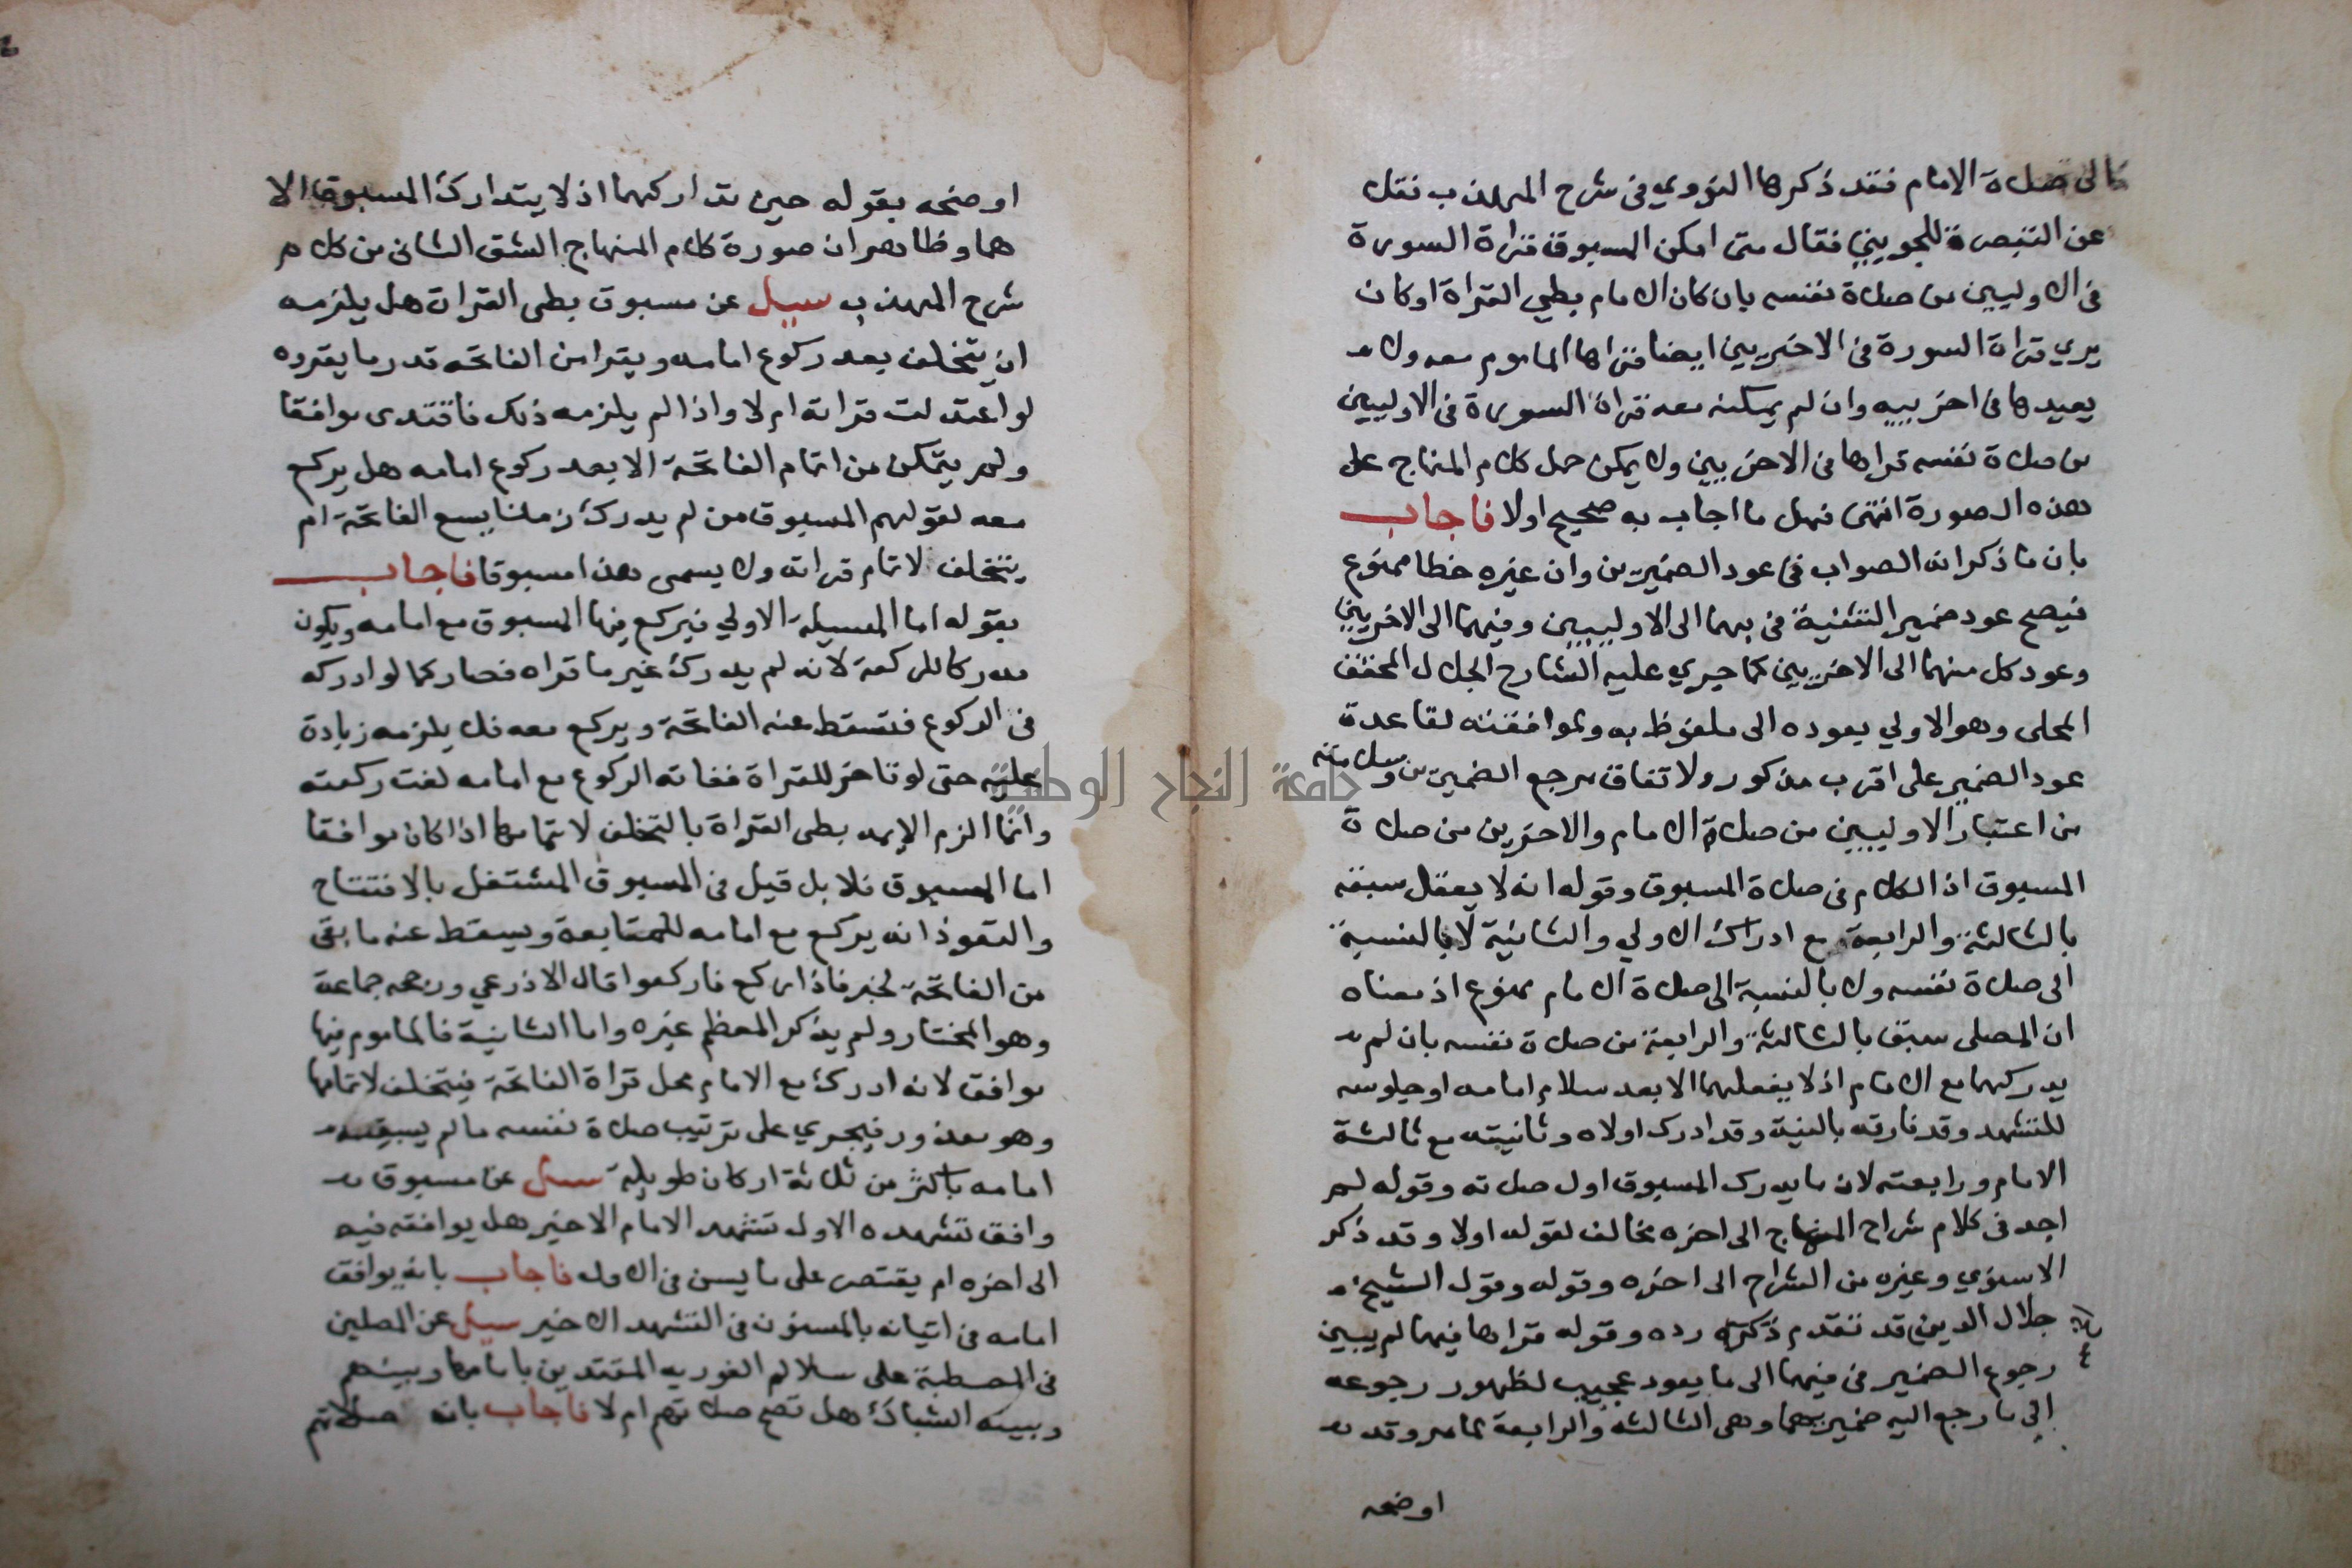 الى صلاة الامام فقد ذكرها النووي في شرح المهذب فقال
عن التبصرة للجويني فقال متى امكن المسبوق قراة السورة
في الاوليين من صلاة نفسه بان كان الامام بطي القراة او كان
يري قراة السورة في الاخيريين ايضا قراها الماموم معه ولا
يعيدها في اخرييه وان لم يمكنه معه قراة السورة في الاوليين
من صلاة نفسه قراها في الاخريين ولا يمكن حمل كلام المنهاج على
هذه الصورة انتهى فهل ما اجاب به صحيح اولا فاجاب
بان ما ذكر انه الصواب في عود الضميرين وان غيره خطا ممنوع
فيصح عود ضمير التثنية في بهما الى الاوليين وفيهما الى الاخريين
وعود كل منهما الى الاخريين كما جري عليه الشارح الجلال المحقق
المحلى وهو الاولي يعوده الى ملفوظ به ولموافقته لقاعدة
عود الضمير على اقرب مذكور ولاتفاق مرجع الضميرين وسلامته
من اعتبار الاوليين من صلاة الامام والاخرين من صلاة
المسبوق اذ الكلام في صلاة المسبوق وقوله انه لا يعقل سبقه
بالثالثة والرابعة مع ادراك الاولي والثانية لا بالنسبة
الى صلاة نفسه ولا بالنسبة الى صلاة الامام ممنوع اذ معناه
ان المصلى سبق بالثالثة والرابعة من صلاة نفسه بان لم
يدركهما مع الامام اذ لا يفعلهما الا بعد سلام امامه او جلوسه
للتشهد وقد فارقه بالنية وقد ادرك اولاه وثانيته مع ثالثة
الامام ورابعته لان ما يدرك المسبوق اول صلاته وقوله لم
اجد في كلام شراح المنهاج الى اخره مخالف لقوله اولا وقد ذكر
الاسنوي وغيره من الشراح الى اخره وقوله وقول الشيخ
جلال الدين قد تقدم ذكره رده وقوله قراها فيهما لم يبين
رجوع الضمير في فيهما الى ما يعود عجيب لظهور رجوعه
الى ما رجع اليه ضمير بهما وهي الثالثة والرابعة كما مر وقد
اوضحه
اوضحه بقوله حين تداركهما اذ لا يتدارك المسبوق الا
هما وظاهر ان صورة كلام المنهاج الشق الثانى من كلام
شرح المهذب سيل عن مسبوق بطى القراة هل يلزمه
ان يتخلف بعد ركوع امامه ويقرا من الفاتحة قدر ما يقروه
لو اعتدلت قراته ام لا واذا لم يلزمه ذلك فاقتدى موافقا
ولم يتمكن من اتمام الفاتحة الا بعد ركوع امامه هل يركع
معه لقولهم المسبوق من لم يدرك زمنا يسع الفاتحة ام
يتخلف لاتمام قراته ولا يسمى هذا مسبوقا فاجاب
بقوله اما المسيلة الاولي فيركع فيها المسبوق مع امامه ويكون
مدركا للركعة لانه لم يدرك غير ما قراه فصار كما لو ادركه
في الركوع فتسقط عنه الفاتحة ويركع معه فلا يلزمه زيادة
عليه حتى لو تاخر للقراة ففاته الركوع مع امامه لغت ركعته
وانما الزم الايمه بطى القراة بالتخلف لاتمامها اذا كان موافقا
اما المسبوق فلا بل قيل في المسبوق المشتغل بالافتتاح
والتعوذ انه يركع مع امامه للمتابعة ويسقط عنه ما بقى
من الفاتحة لخبر فاذا ركع فاركعوا قال الاذرعي ورجحه جماعة
وهو المختار ولم يذكر المعظم غيره واما الثانية فالماموم فيها
موافق لانه ادرك مع الامام محل قراة الفاتحة فيتخلف لاتمامها
وهو معذور فيجري على ترتيب صلاة نفسه ما لم يسبقه
امامه باكثر من ثلاثة اركان طويلة سيل عن مسبوق
وافق تشهده الاول تشهد الامام الاخير هل يوافقه فيه
الى اخره ام يقتصر على ما يسن في الاول فاجاب بانه يوافق
امامه في اتيانه بالمسنون في التشهد الاخير سيل عن المصلين
في المصطبة على سلالم الغوريه المقتدين بامامها وبينهم
وبينه الشباك هل تصح صلاتهم ام لا فاجاب بانه صلاتهم
جامعة النجاح الوطنية